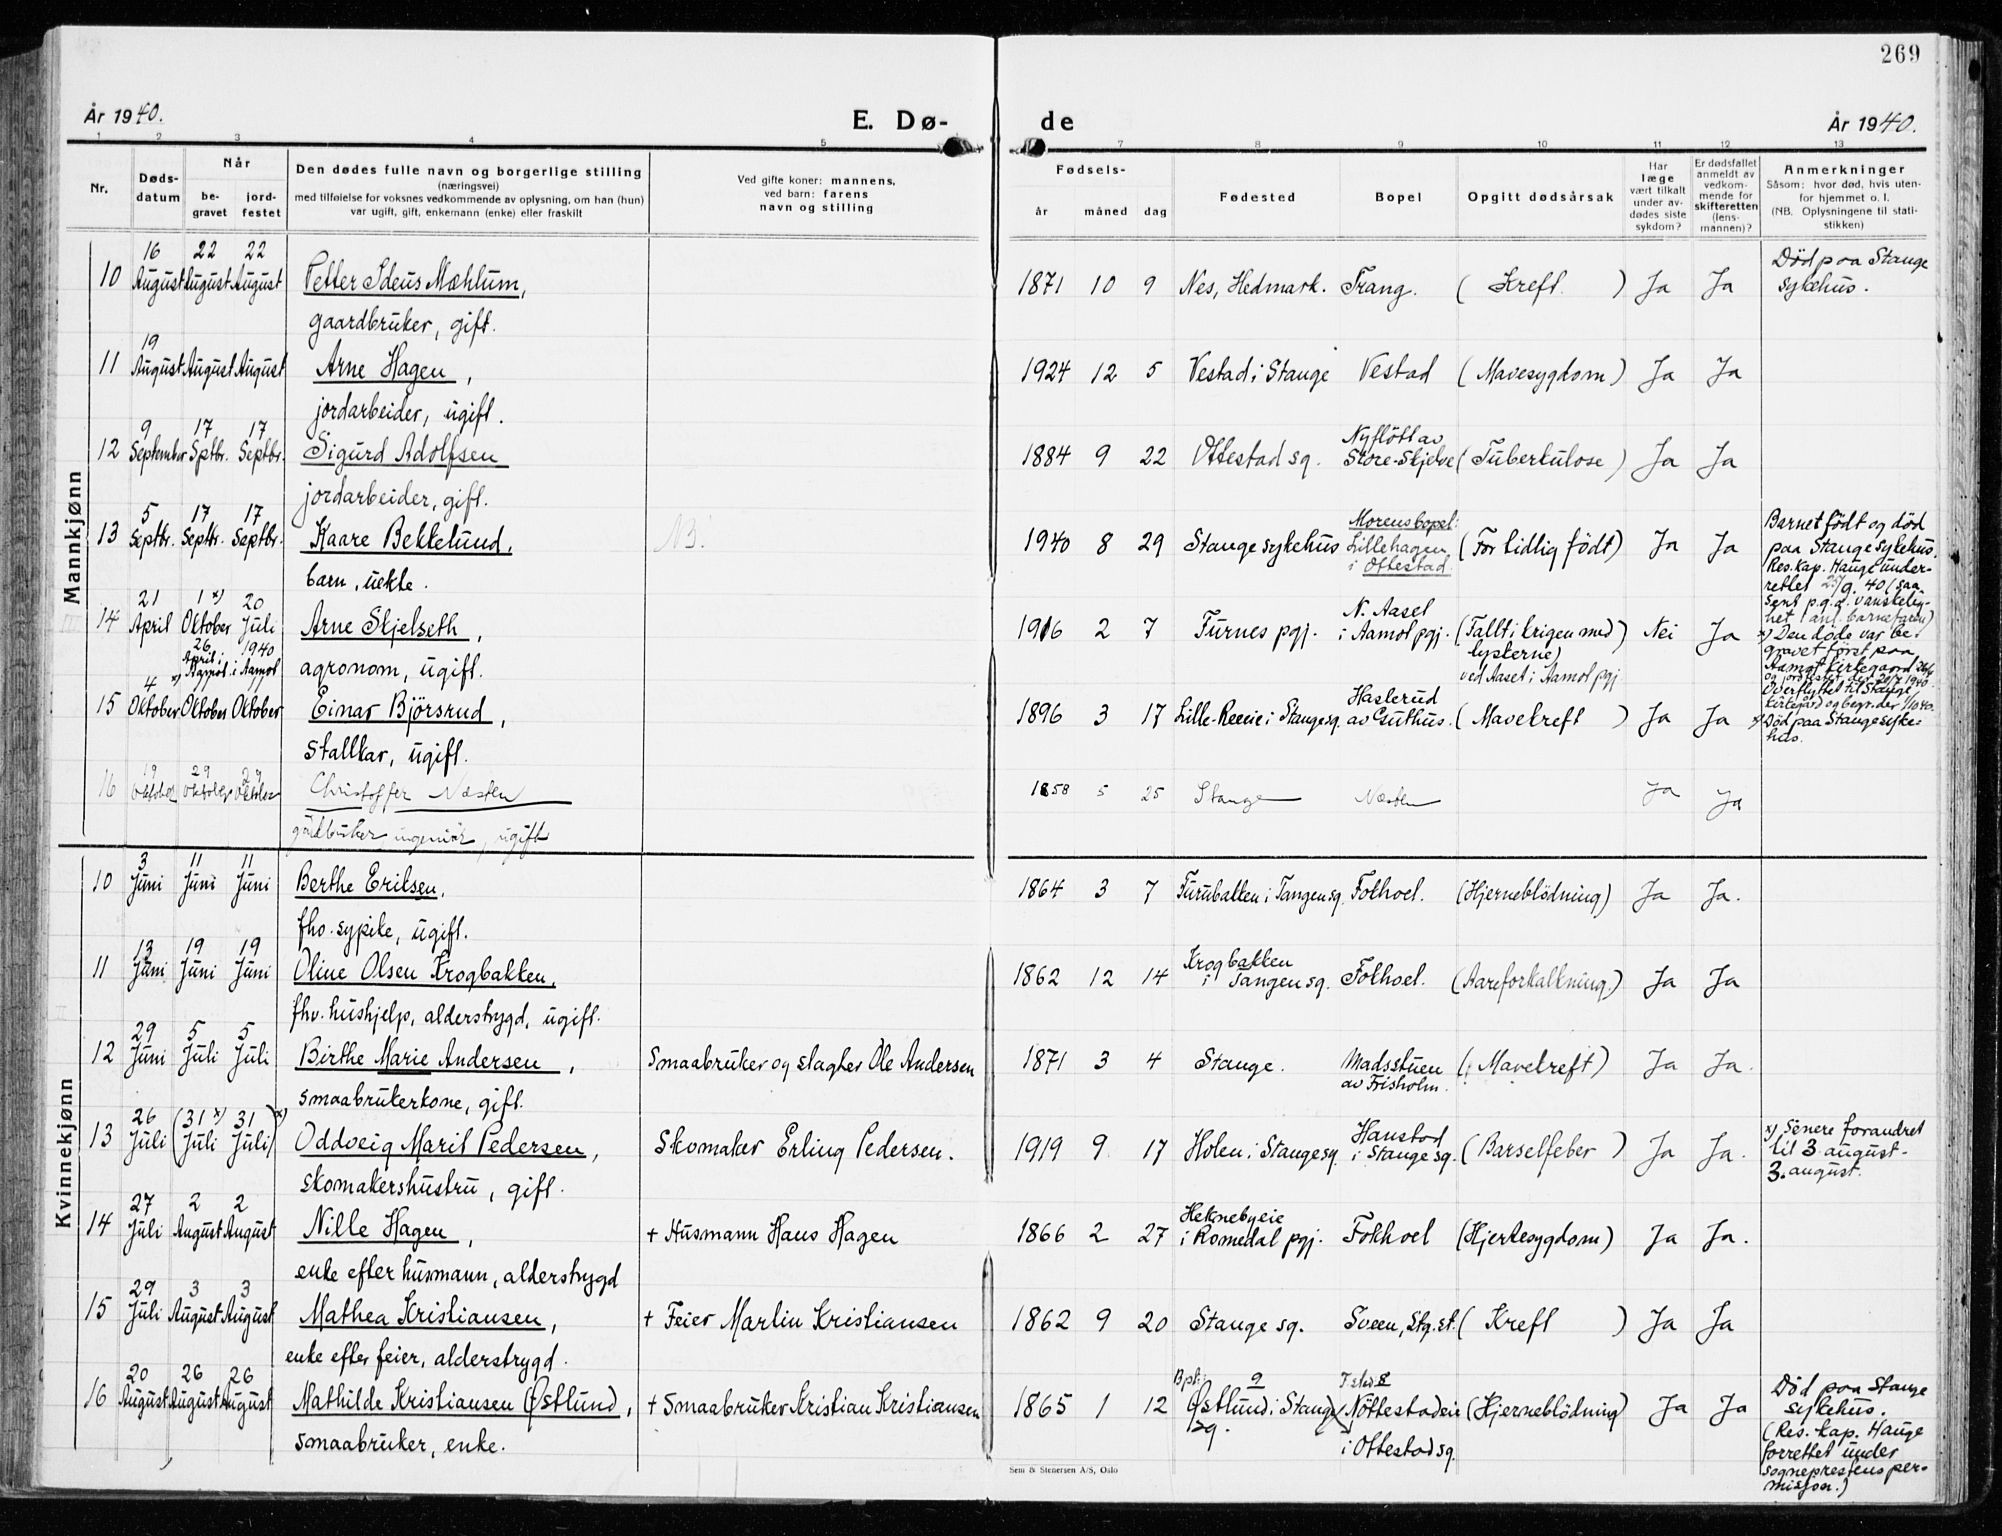 269
År 1940.
E. Dø-
de
År 1940.
1 2 3 4 5 7 8 9 10 11 12 13
Nr.
Døds-
datum
Når
be-
gravet
jord-
festet
Den dødes fulle navn og borgerlige stilling
(næringsvei)
med tilføielse for voksnes vedkommende av oplysning, om han (hun)
var ugift, gift, enkemann (enke) eller fraskilt
Ved gifte koner: mannens,
ved barn: farens
navn og stilling
Fødsels-
år måned dag
Fødested
Bopel
Opgitt dødsårsak
Har
læge
vært tilkalt
under av-
dødes siste
sykdom?
Er dødsfallet
anmeldt av
vedkom-
mende for
skifteretten
(lens-
mannen)?
Anmerkninger
Såsom: hvor død, hvis uten-
for hjemmet o. l.
(NB. Oplysningene til stati-
stikken)
Mannkjønn
16 22 22
10 August August August Petter Ideus Mæhlum, 1871 10 9 Nes, Hedmark. Trang. (Kreft) Ja Ja
gaardbruker, gift.
Død paa Stange
sykehus.
19
11 August August August Arne Hagen, 1924 12 5 Vestad i Stange Vestad (Mavesygdom) Ja Ja
jordarbeider, ugift.
9 17 17
12 September Septbr. Septbr. Sigurd Adolfsen 1884 9 22 Ottestad sq. Nyflött av
Store-Skjelve (Tuberkulose) Ja Ja
jordarbeider, gift.
5 17 17
13 Septbr. Septbr. Septbr. Kaare Bekkelund, N3. 1940 8 29 Stange sykehus Morens bopel:
Lillehagen
i Ottestad. (For tidlig født) Ja Ja
barn, uekte.
Barnet født og død
paa Stange sykehus.
Res. kap. Hauge under-
rettet 25/9. 40 (saa
sent p.g.a. vanskelig-
het anl. barnefaren)
21 1 x) 20
14 April Oktober Juli Arne Skjelseth, 1916 2 7 Furnes pgj. N. Aaset
i Aamot pgj. (Falt i krigen med
tyskerne)
ved Aaset i Aamot pgj Nei Ja
26. 1940
April i
x) Aamot i Aamot agronom, ugift.
x) Den døde var be-
gravet først paa
Aamot kirkegaard 26/4
og jordfestet der 20/7 1940.
Overflyttet til Stange
kirkegård og begr. der 1/10 40.
4
15 Oktober Oktober Oktober Einar Björsrud, 1896 3 17 Lille-Reeeie i Stange sq. Haslerud
av Guthus. (Mavekreft) Ja Ja
stallkar, ugift.
x) Død paa Stange syke-
hus.
19 29 29
16 Oktober Oktober Oktober Christoffer Næsten 1858 5 25 Stange Næsten Ja Ja
gårdbruker, ingeniør, ugift
Kvinnekjønn
3 11 11
10 Juni Juni Juni Berthe Eriksen, 1864 3 7 Furubakken i Tangen sq. Fokhoel. (Hjerneblödning) Ja Ja.
fhv. sypike, ugift.
13 19 19
11 Juni Juni Juni Oline Olsen Krogbakken, 1862 12 14 Krogbakken
i Tangen sq. Fokhoel. (Aareforkalkning.) Ja Ja
fhv. hushjelp, alderstrygd, ugift.
29 5 5
12 Juni Juli Juli Birthe Marie Andersen, Smaabruker og slagter Ole Andersen 1871 3 4 Stange. Madsstuen
av Frisholm. (Mavekreft) Ja Ja.
smaabrukerkone, gift.
26 (31 x) 31) x)
13 Juli (Juli Juli) Oddveig Marit Pedersen, Skomaker Erling Pedersen. 1919 9 17 Holen i Stange sq. Hanstad
i Stange sq. (Barselfeber) Ja Ja.
skomakershustru, gift.
x) Senere forandret
til 3. august -
3. august.
27 2 2
14 Juli August August Nille Hagen, + Husmann Hans Hagen 1866 2 27 Heknebyeie
i Romedal pgj. Fokhoel (Hjertesygdom) Ja Ja.
enke efter husmann, alderstrygd
29 3 3
15 Juli August August Mathea Kristiansen, + Feier Martin Kristiansen 1862 9 20 Stange sq. Sveen, Stg. st. (Kreft) Ja Ja
enke efter feier, alderstrygd.
20 26 26
16 August August August Mathilde Kristiansen Østlund, + Smaabruker Kristian Kristiansen 1865 1 12 Østlund i Stange
sq. Nøttestadeie
i Ottestad sq. (Hjerneblödning) Ja Ja
smaabruker, enke.
Død paa Stange
sykehus.
(Res. kap. Hauge
forrettet under
sogneprestens per-
misjon.)
Sem & Stenersen A/S, Oslo